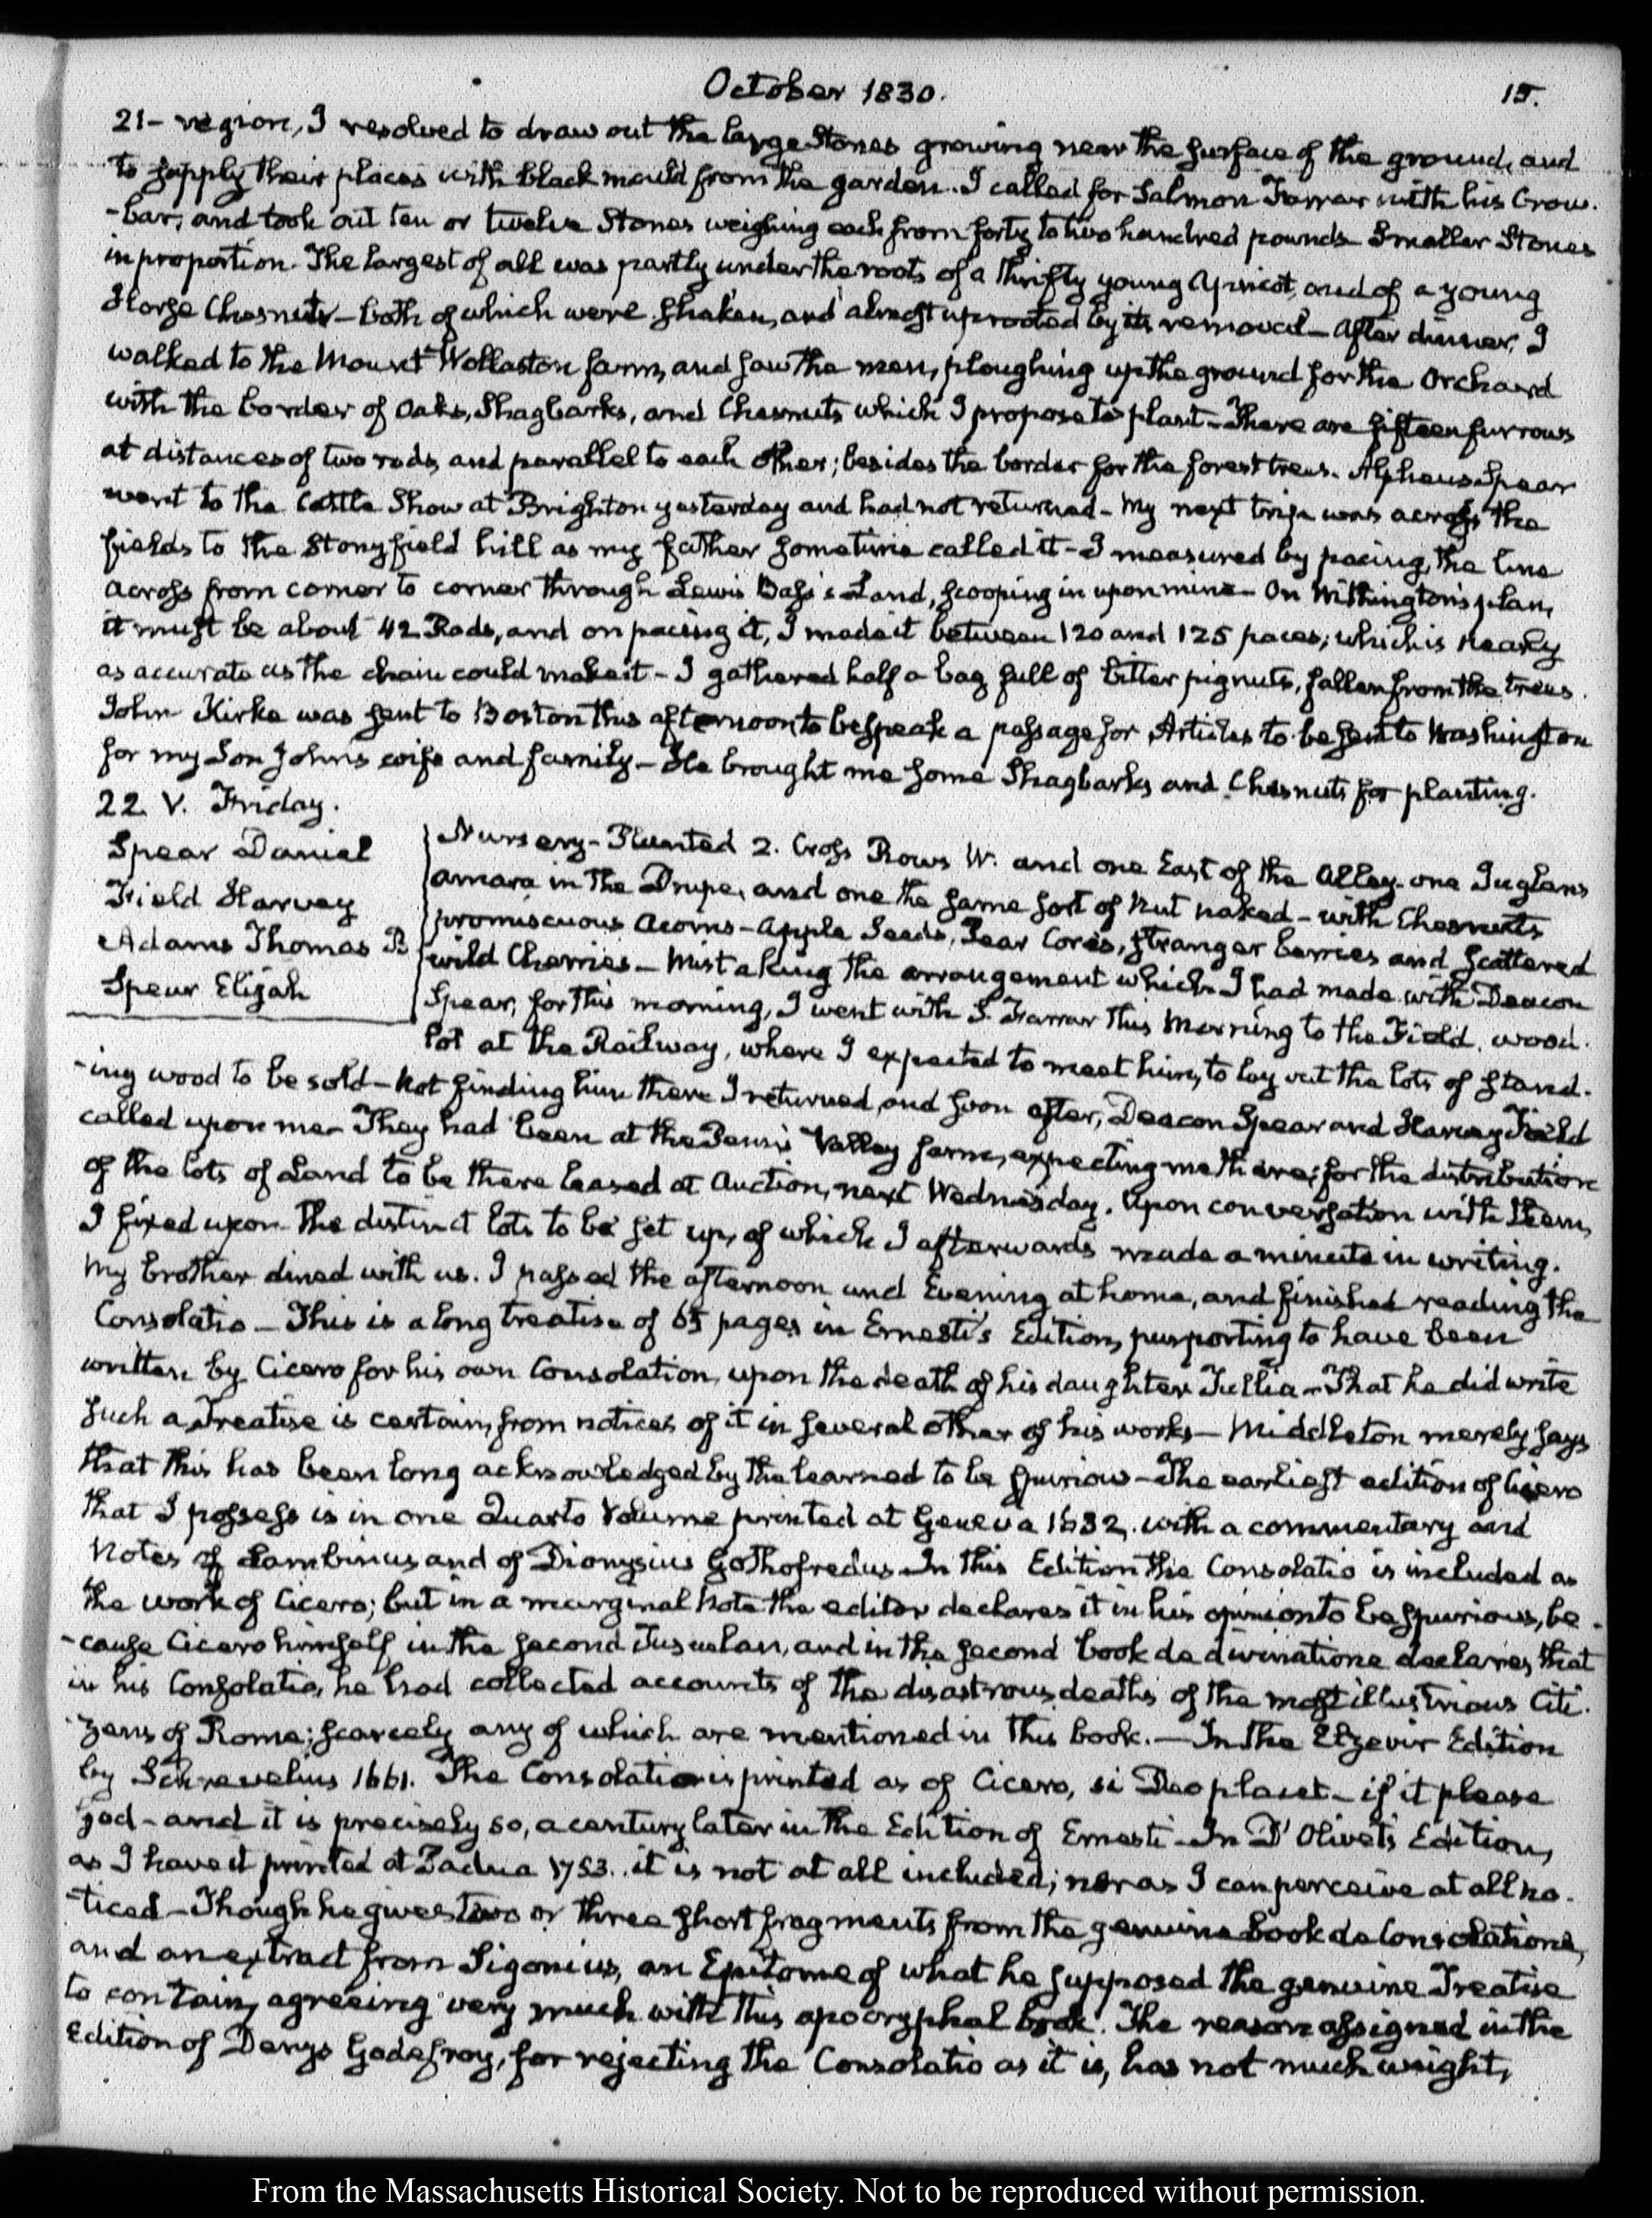 October 1830.
15.
21- region, I resolved to draw out the large Stones growing near the surface of the ground, and
to supply their places with black mould from the garden. I called for Salmon Farrar with his Crow-
-bar, and took out ten or twelve Stones weighing each from forty to two hundred pounds. Smaller Stones
in proportion. The largest of all was partly under the roots of a thrifty young Apricot, and of a young
Horse Chesnut - both of which were shaken, and almost uprooted by its removal - After dinner, I
walked to the Mount Wollaston farm, and saw the men, ploughing up the ground for the Orchard
with the border of Oaks, Shagbarks, and Chesnuts which I propose to plant - There are fifteen furrows
at distances of two rods, and parallel to each other; besides the border for the forest trees. Alpheus Spear
went to the Cattle Show at Brighton yesterday and had not returned - My next trip was across the
fields to the Stonyfield hill as my father sometime called it - I measured by pacing, the line
across from corner to corner through Lewis Bass's Land, scooping in upon mine - On Withington's plan,
it must be about 42 Rods, and on pacing it, I made it between 120 and 125 paces; which is nearly
as accurate as the chain could make it - I gathered half a bag full of bitter pignuts, fallen from the trees.
John Kirke was sent to Boston this afternoon to bespeak a passage for Articles to be sent to Washington
for my Son John's wife and family - He brought me some Shagbarks and Chesnuts for planting.
22. V. Friday.
Spear Daniel
Field Harvey
Adams Thomas B
Spear Elijah
Nursery - Planted 2. Cross Rows W. and one East of the Alley - one Juglans
amara in the Drupe, and one the same sort of Nut naked - with Chesnuts
promiscuous Acorns - Apple Seeds, Pear Cores, stranger berries and scattered
wild Cherries - Mistaking the arrangement which I had made with Deacon
Spear, for this morning, I went with S. Farrar this Morning to the Field, wood-
lot at the Railway, where I expected to meet him, to lay out the lots of stand-
-ing wood to be sold - Not finding him there I returned, and soon after, Deacon Spear and Harvey Field
called upon me - They had been at the Penn's Valley farm, expecting me there; for the distribution
of the lots of Land to be there leased at Auction, next Wednesday. Upon conversation with them,
I fixed upon the distinct lots to be set up, of which I afterwards made a minute in writing.
My brother dined with us. I passed the afternoon and Evening at home, and finished reading the
Consolatio - This is a long treatise of 65 pages in Ernesti's Edition, purporting to have been
written by Cicero for his own Consolation, upon the death of his daughter Tullia - That he did write
such a Treatise is certain, from notices of it in several other of his works - Middleton merely says
that this has been long acknowledged by the learned to be spurious - The earliest edition of Cicero
that I possess is in one Quarto Volume printed at Geneva 1632. with a commentary and
Notes of Lambinus and of Dionysius Gothofredus - In this Edition the Consolatio is included as
the work of Cicero; but in a marginal Note the editor declares it in his opinion to be spurious, be-
-cause Cicero himself in the second Tusculan, and in the second book de divinatione declares, that
in his Consolatio, he had collected accounts of the disastrous deaths of the most illustrious Citi-
-zens of Rome; scarcely any of which are mentioned in this book. - In the Elzevir Edition
by Schrevelius 1661. The Consolatio is printed as of Cicero, si Deo placet - if it please
god - and it is precisely so, a century later in the Edition of Ernesti - In D'Olivet's Edition,
as I have it printed at Padua 1753. it is not at all included; nor as I can perceive at all no-
-ticed - Though he gives two or three short fragments from the genuine book de Consolatione,
and an extract from Sigonius, an Epitome of what he supposed the genuine Treatise
to contain, agreeing very much with this apocryphal book. The reason assigned in the
Edition of Denys Godefroy, for rejecting the Consolatio as it is, has not much weight,
From the Massachusetts Historical Society. Not to be reproduced without permission.